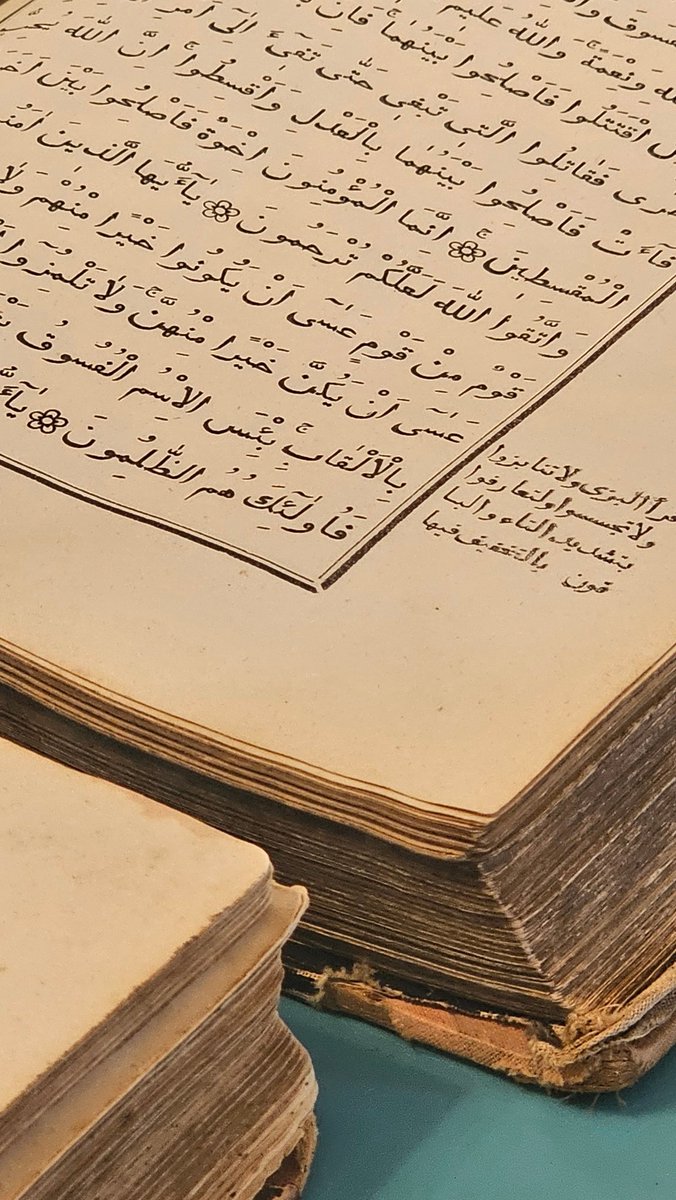 فسوق وا
له ونعمة والله عليم
ن اقتتلوا فاصلحوا بينهما فان
خرى فقاتلوا الّتى تبغى حتّى تفىء الى امر
فآءت فاصلحوا بينهما بالعدل واقسطوا انّ الله يحب
الْمقسطين انّما الْمؤْمنون اخْوة فاصْلحوا بيْن اخ
واتّقوا الله لعلّكم ترْحمون ياۤيّها الّذين امنو
قوْم منْ قوْم عسٰۤى انْ يكونوا خيْرا منْهم ولا
عسٰۤى انْ يكنّ خيْرا منْهنّ ولا تلْمزوا
بالْالْقاب بئْس الاسْم الْفسوق بع
فاولٰۤئك هم الظّٰلمون ياۤيّ
قرأ البزى ولا تنابزوا
ولا تجسسوا ولتعارفوا
بتشديد التاء والبا
قون بالتخفيف فيها